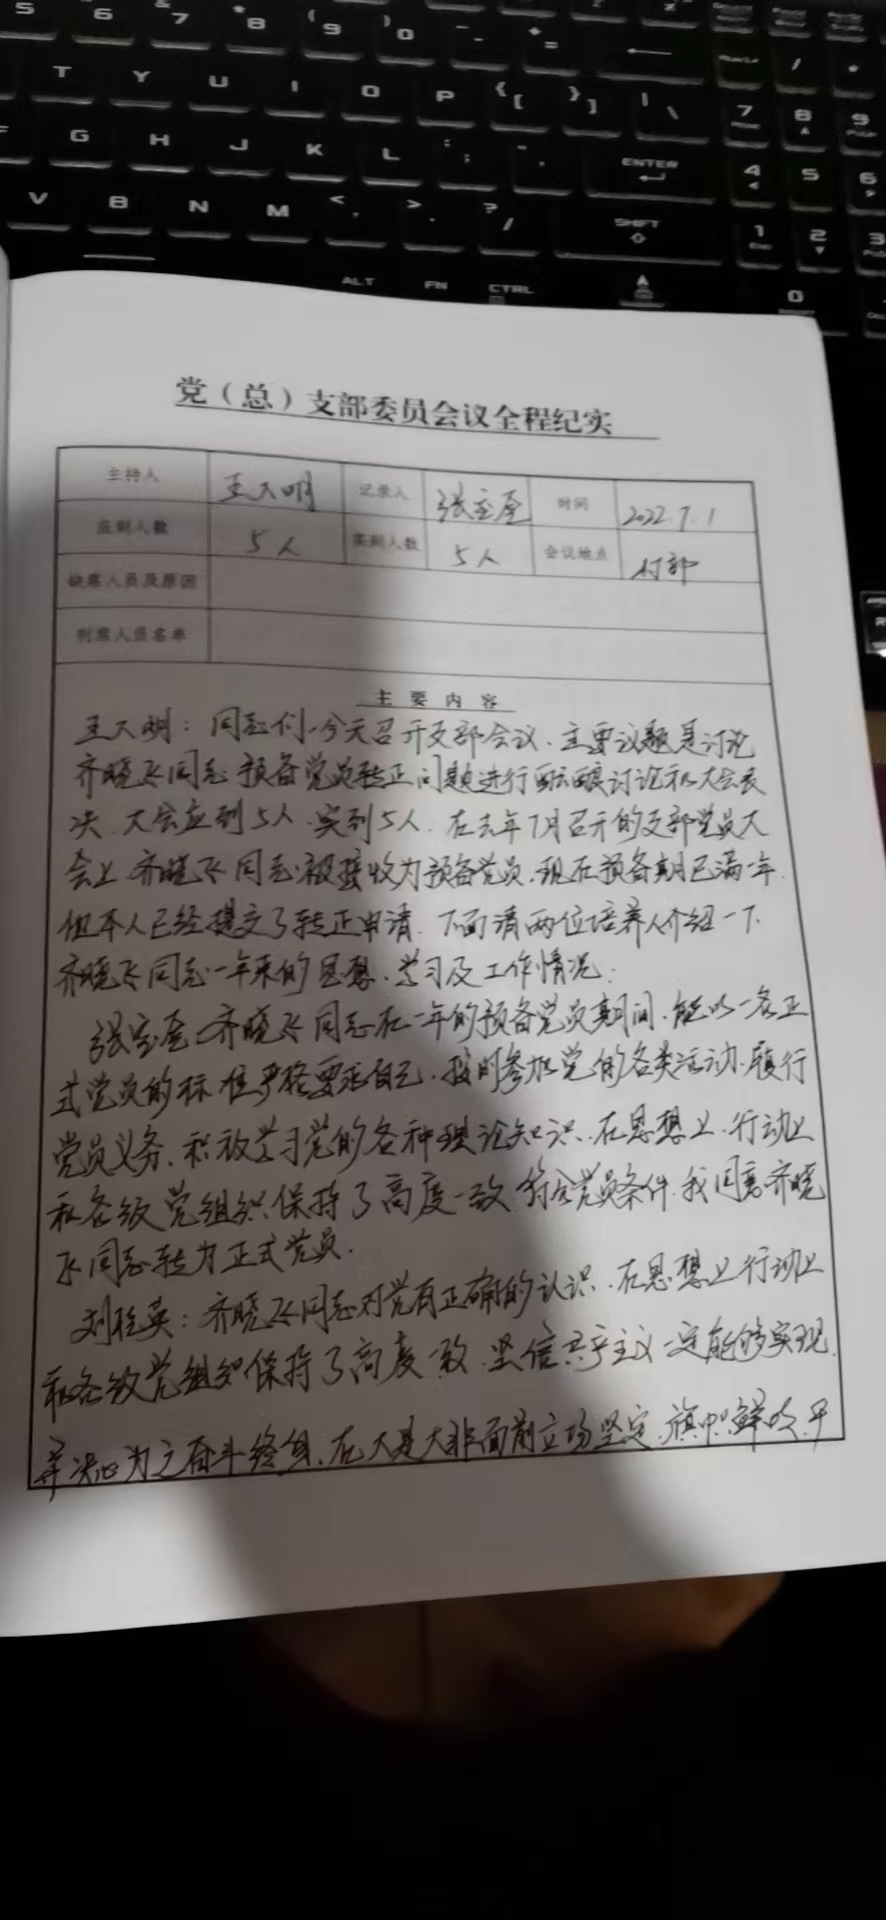 5 6 7 * 8 ( 9 ) 0 _ - + = ← /
T Y U I O P { [ } ] | \ 7 8 9
G H J K L : ; " ' ENTER 4 5 6
V B N M < , > . ? / SHIFT 1 End 2 3
ALT FN CTRL 0
党（总）支部委员会议全程纪实
主持人 王天明 记录人 张宝奎 时间 2022.7.1
应到人数 5人 实到人数 5人 会议地点 村部
缺席人员及原因
列席人员名单
主要内容
王天明：同志们，今天召开支部会议，主要议题是讨论
齐晓飞同志预备党员转正问题进行酝酿讨论和大会表
决，大会应到5人，实到5人，在去年7月召开的支部党员大
会上齐晓飞同志被接收为预备党员，现在预备期已满一年，
但本人已经提交了转正申请，下面请两位培养人介绍一下
齐晓飞同志一年来的思想、学习及工作情况：
张宝奎：齐晓飞同志在一年的预备党员期间，能以一名正
式党员的标准严格要求自己，按时参加党的各类活动，履行
党员义务，积极学习党的各种理论知识，在思想上、行动上
和各级党组织保持了高度一致，符合党员条件，我同意齐晓
飞同志转为正式党员。
刘桂英：齐晓飞同志对党有正确的认识，在思想上行动上
和各级党组织保持了高度一致，坚信共产主义一定能够实现，
并决心为之奋斗终身，在大是大非面前立场坚定，旗帜鲜明，平